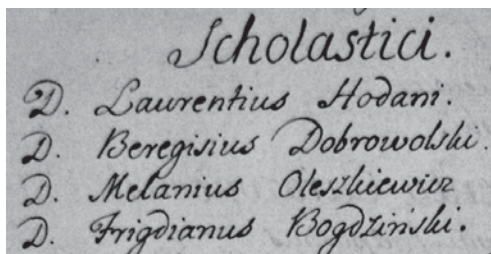 Scholastici.
D. Laurentius Hodani.
D. Beregisius Dobrowolski.
D. Melanius Oleszkiewicz
D. Frigdianus Bogdziński.